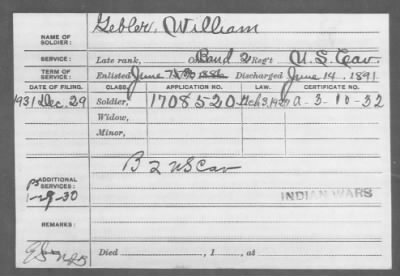 NAME OF SOLDIER: Gebler, William
SERVICE: Late rank, Co. Band 2 Reg't U.S. Cav.
TERM OF SERVICE: Enlisted June 1886 Discharged June 14, 1891
DATE OF FILING. CLASS. APPLICATION NO. LAW. CERTIFICATE NO.
1931 Dec. 29 Soldier, 1708520 3, 1927 a-3-10-32
Widow,
Minor,
B 2 US Cav
ADDITIONAL SERVICES:
INDIAN WARS
REMARKS:
Died , 1 , at